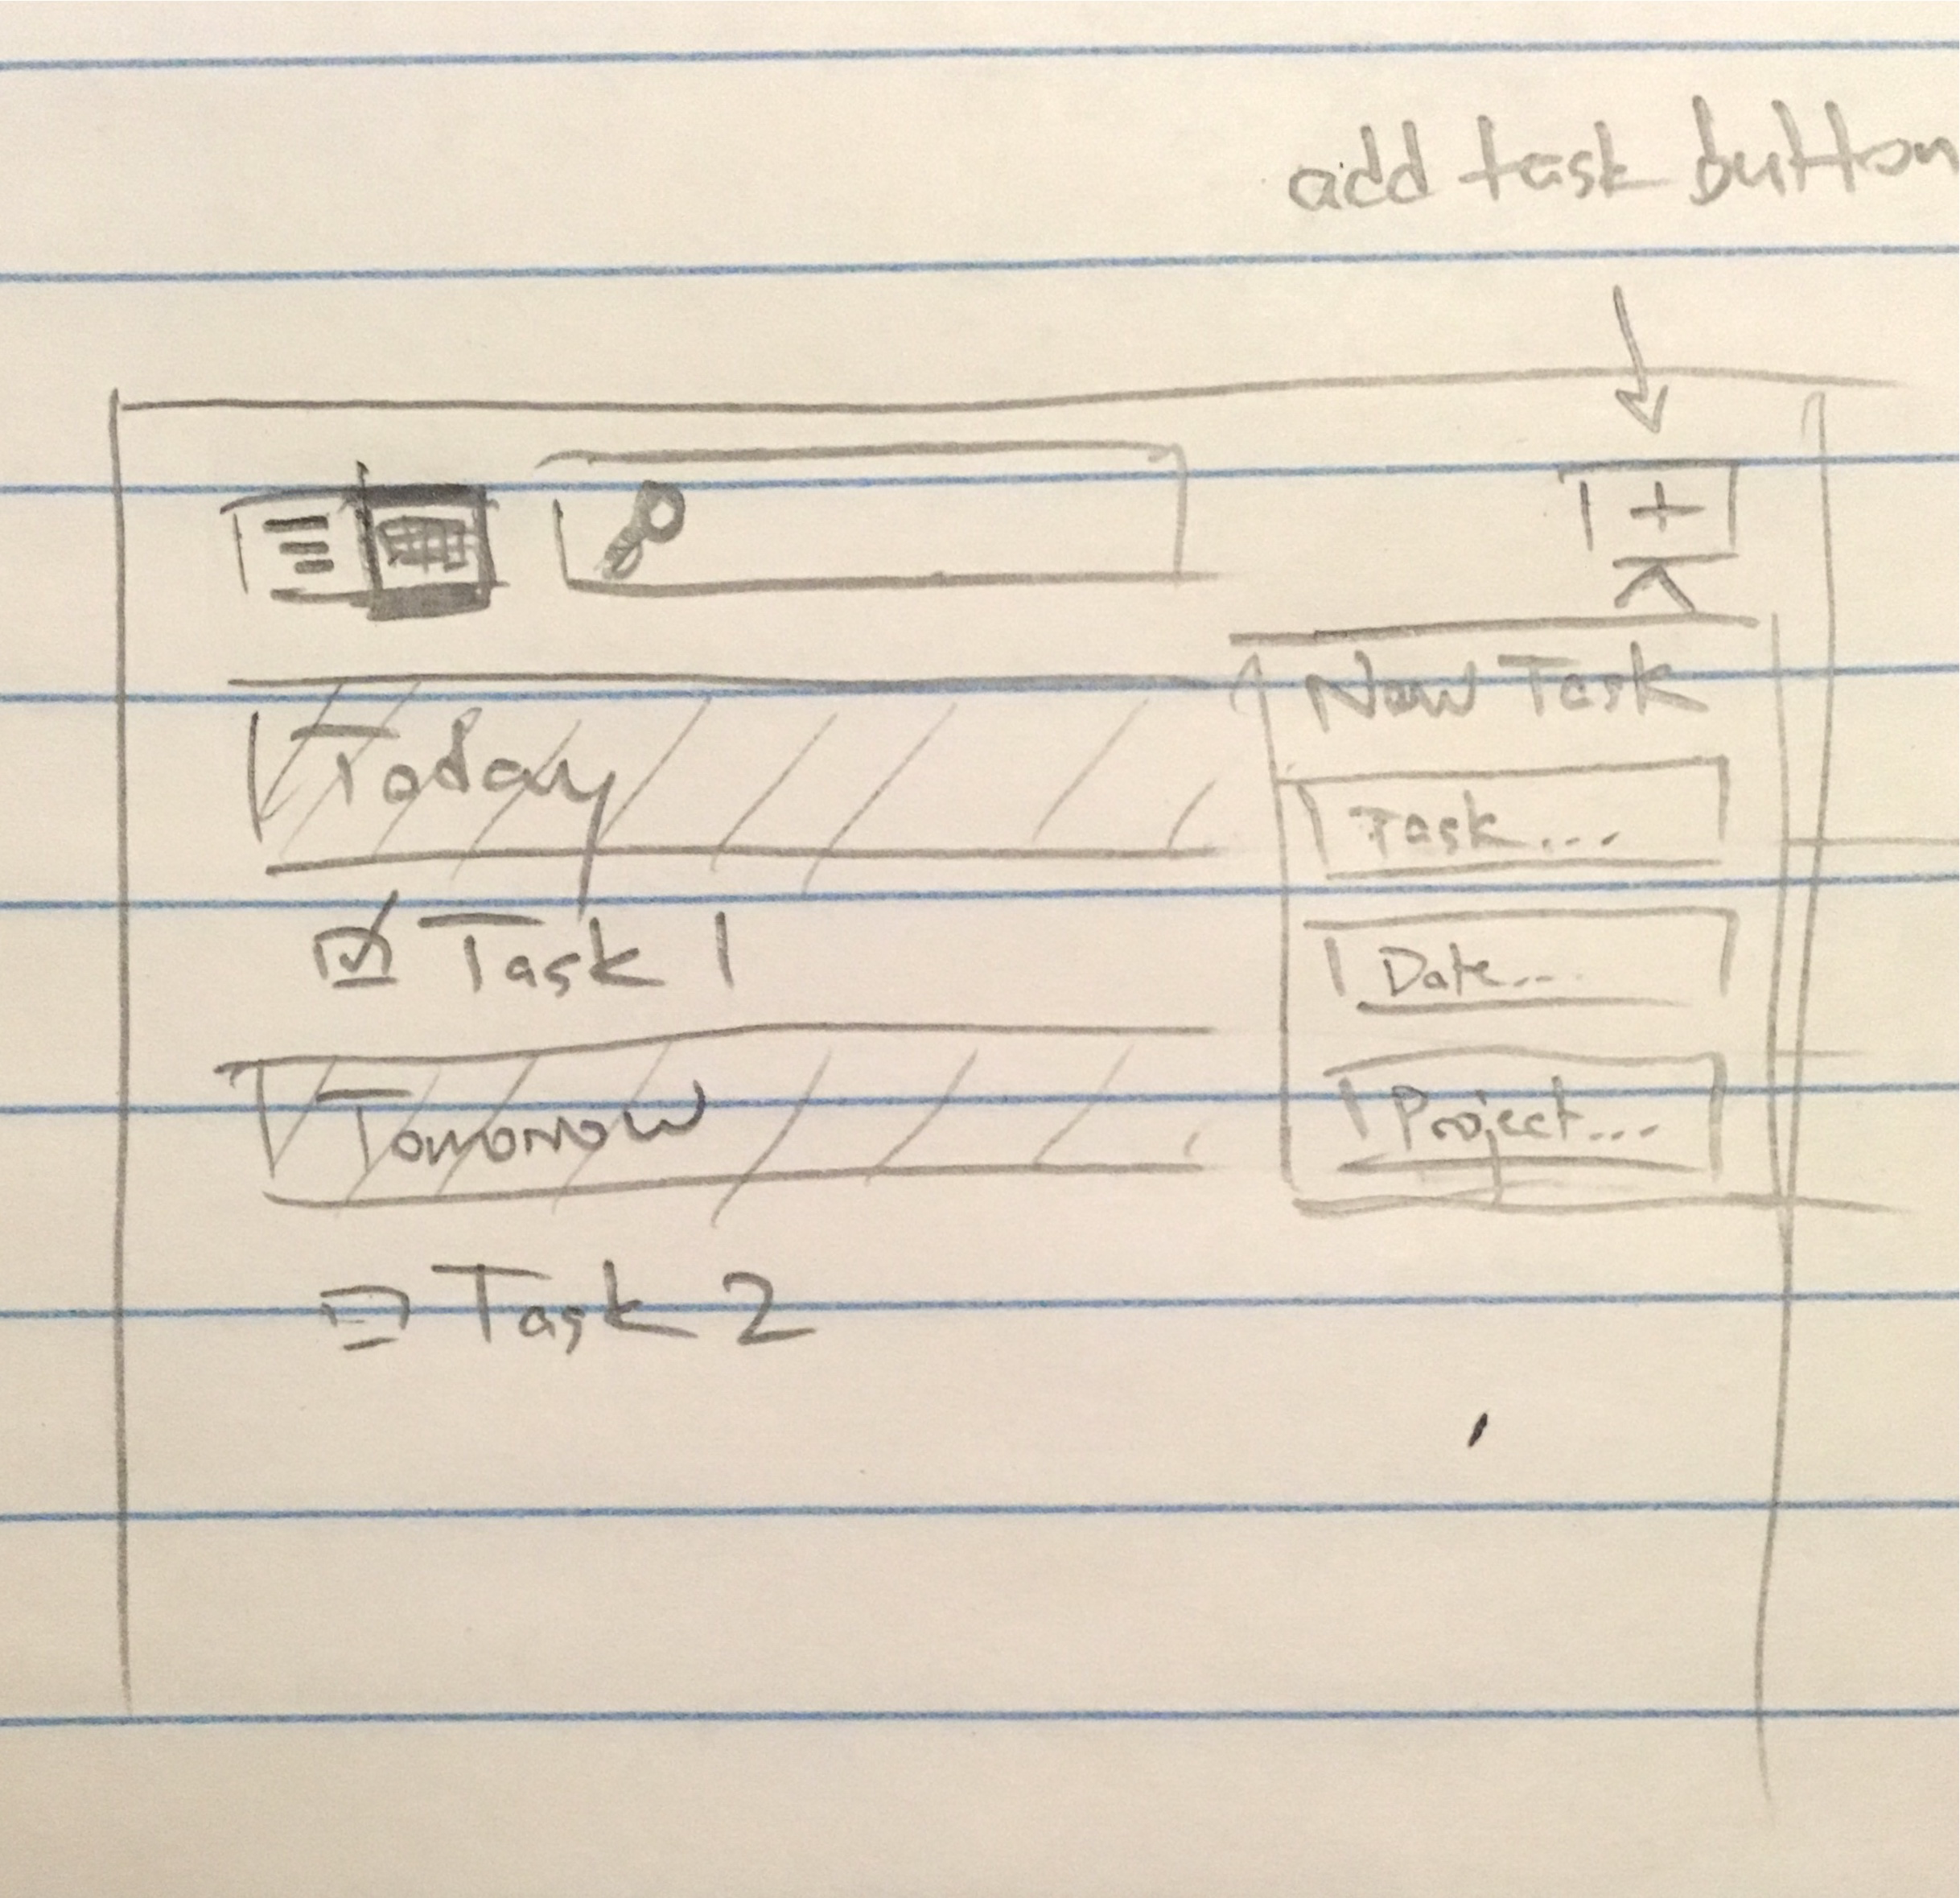 add task button
+
New Task
Today
Task...
Task 1
Date...
Tomorrow
Project...
Task 2